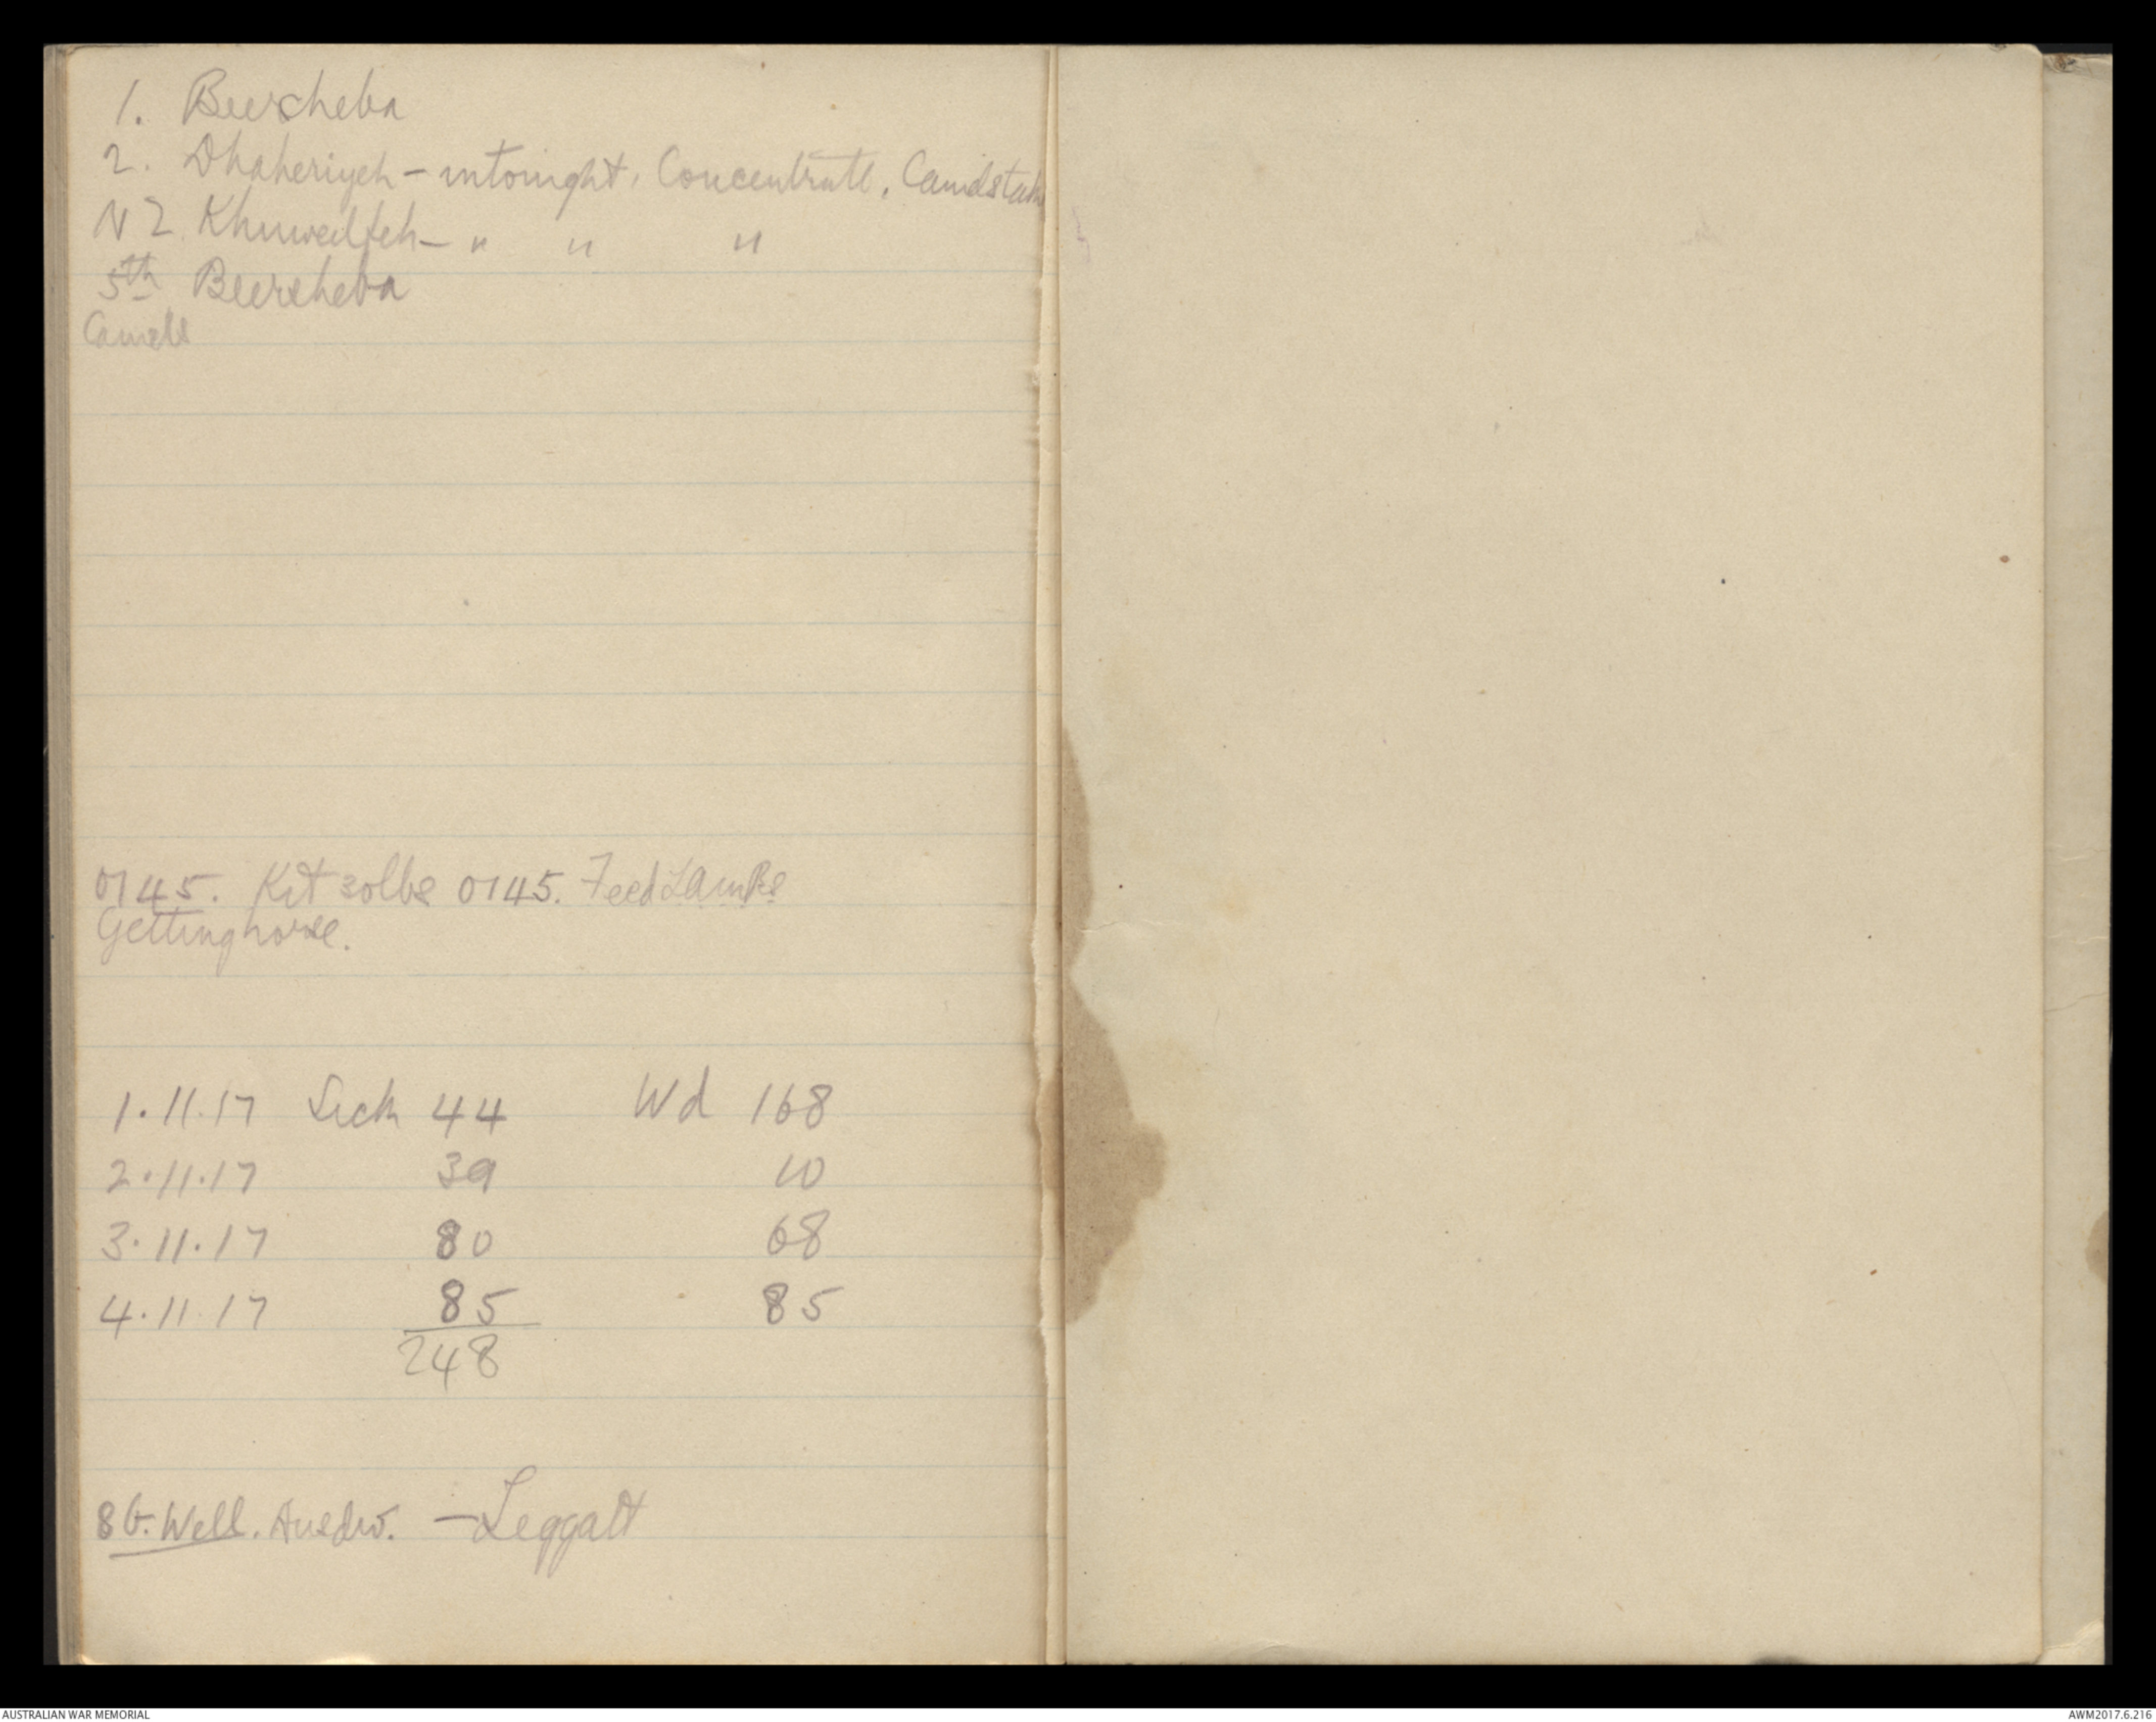 1. Beersheba
2. Dhaheriyeh - intonight, Concentrate,
NZ. Khuweilfeh - " " "
5th Beersheba
Camels
0745. Kit 30lbs 0745. Feed Lamps
Getting horse.
1.11.17 Sick 44 Wd 168
2.11.17 39 10
3.11.17 80 68
4.11.17 85 85
248
Well. - Leggatt
AUSTRALIAN WAR MEMORIAL
AWM2017.6.216